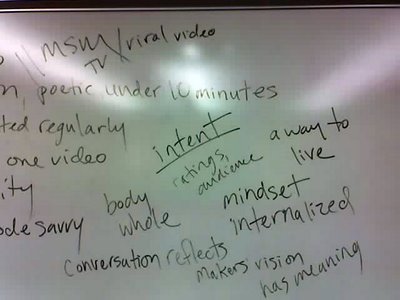 MSM / viral video
TV
poetic under 10 minutes
ted regularly
one video
ity
ode savvy
intent
ratings,
audience
a way to
live
body
whole
mindset
internalized
conversation reflects
makers vision
has meaning